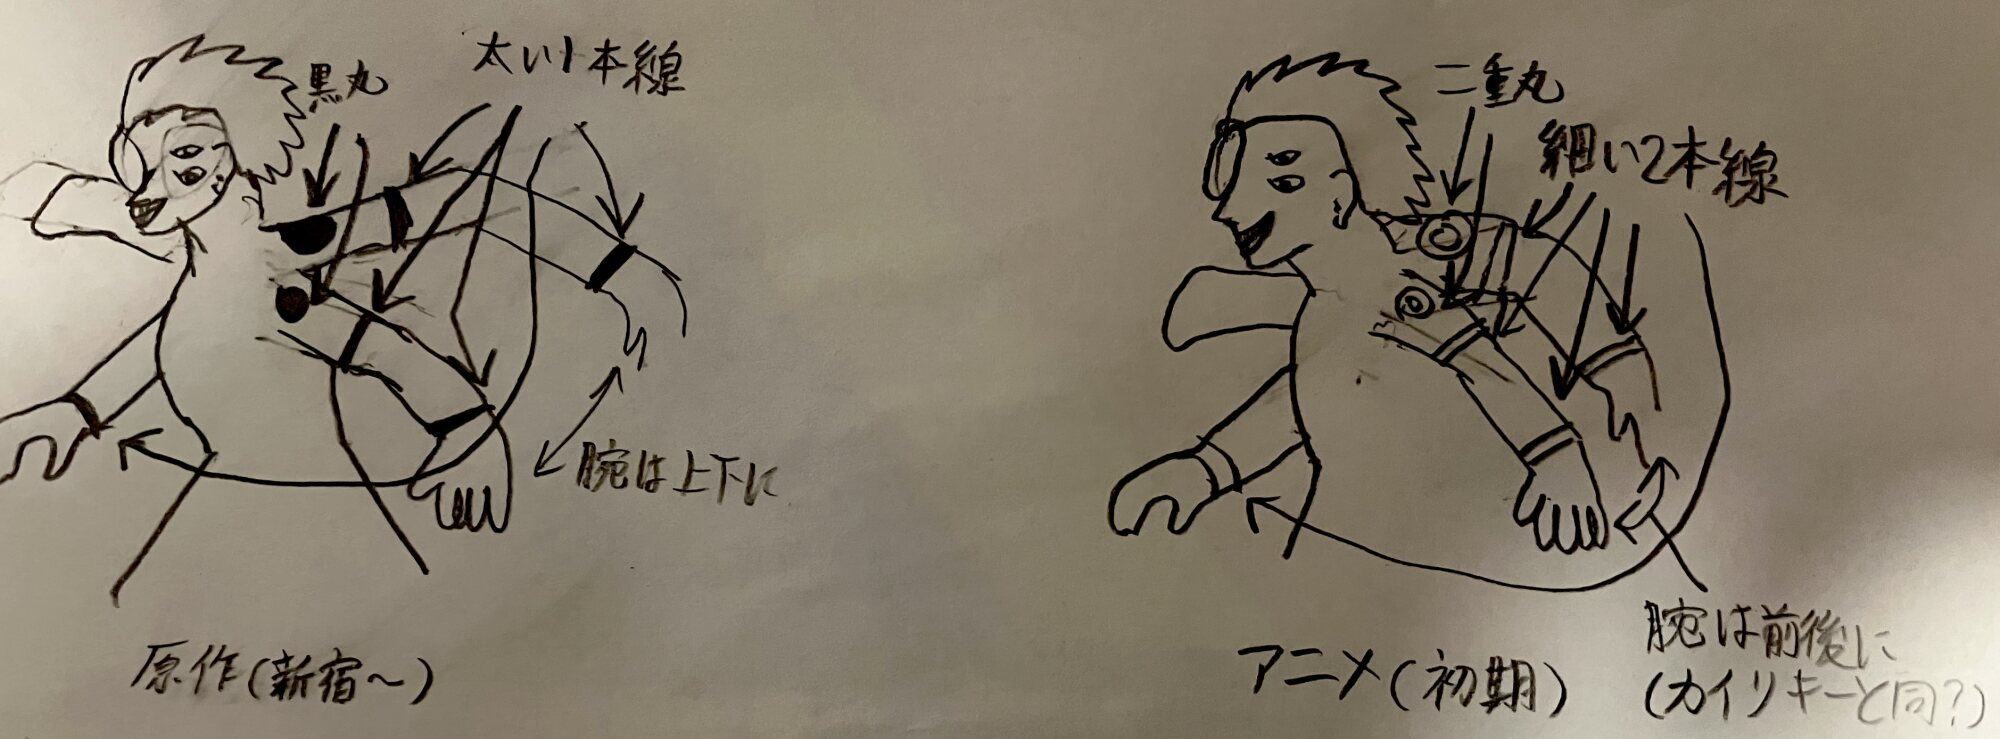 黒丸
太い1本線
腕は上下に
原作(新宿〜)
二重丸
細い2本線
腕は前後に
(カイリキーと同?)
アニメ(初期)